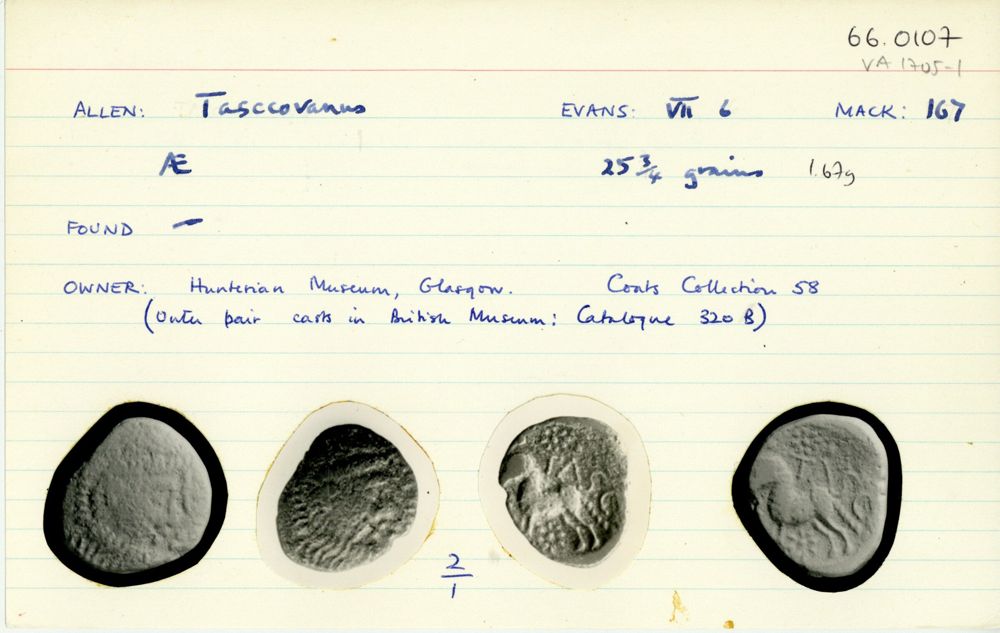 66.0107
VA 1705-1
ALLEN: Tasccovanus EVANS: VII 6 MACK: 167
Æ 25 3/4 grains 1.67g
FOUND —
OWNER: Hunterian Museum, Glasgow. Coats Collection 58
(Outer pair casts in British Museum: Catalogue 320 B)
2/1